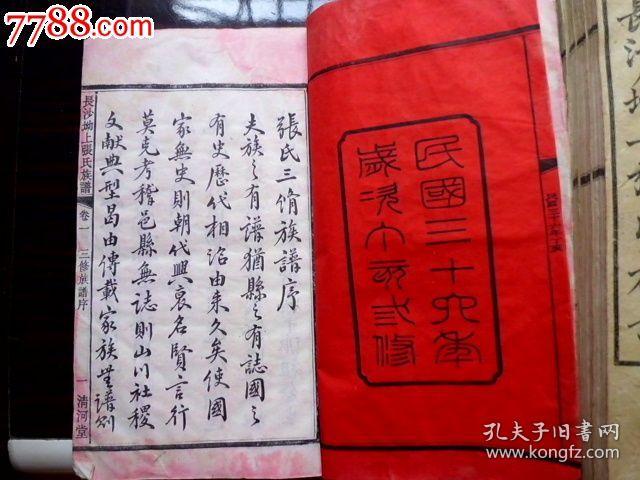 7788.com
民國三十六年
歲次丁亥修
民國三十六年丁亥
張氏三脩族譜序
夫族之有譜猶縣之有誌國之
有史歷代相沿由来久矣使國
家無史則朝代興衰名賢言行
莫克考稽邑縣無誌則山川社稷
文献典型曷由傳載家族無譜則
長沙坳上張氏族譜 卷一 三修族譜序 一 清河堂
長沙坳上
孔夫子旧书网